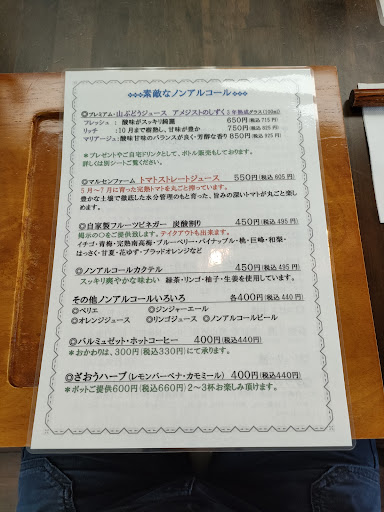 ◇◇◇素敵なノンアルコール◇◇◇
◎プレミアム・山ぶどうジュース アメジストのしずく3年熟成グラス(100ml)
フレッシュ : 酸味がスッキリ綺麗 650円(税込 715円)
リッチ :10月まで樹熟し、甘味が豊か 750円(税込 825円)
マリアージュ:酸味甘味のバランスが良く芳醇な香り 850円(税込 925円)
*プレゼントやご自宅ドリンクとして、ボトル販売もしております。
詳しくは別シートご覧ください。
◎マルセンファーム トマトストレートジュース 550円(税込 605円)
5月~7月に育った完熟トマトを丸ごと搾っています。
豊かな土壌で徹底した水分管理のもと育った、旨みの深いトマトが丸ごと楽し
めます。
◎自家製フルーツビネガー 炭酸割り 450円(税込 495円)
掲示の〇をご提供致します。テイクアウトも出来ます。
イチゴ・青梅・完熟南高梅・ブルーベリー・パイナップル・桃・巨峰・和梨・
はっさく・甘夏・花ゆず・ブラッドオレンジなど
◎ノンアルコールカクテル 450円(税込 495円)
スッキリ爽やかな味わい 緑茶・リンゴ・柚子・生姜を使用しています。
その他ノンアルコールいろいろ 各400円(税込 440円)
◎ペリエ ◎ジンジャーエール
◎オレンジジュース ◎リンゴジュース ◎ノンアルコールビール
◎バルミュゼット・ホットコーヒー 400円(税込440円)
*おかわりは、300円(税込330円)にて承ります。
◎ざおうハーブ(レモンバーベナ・カモミール) 400円(税込440円)
*ポットご提供600円(税込660円)2~3杯お楽しみ頂けます。